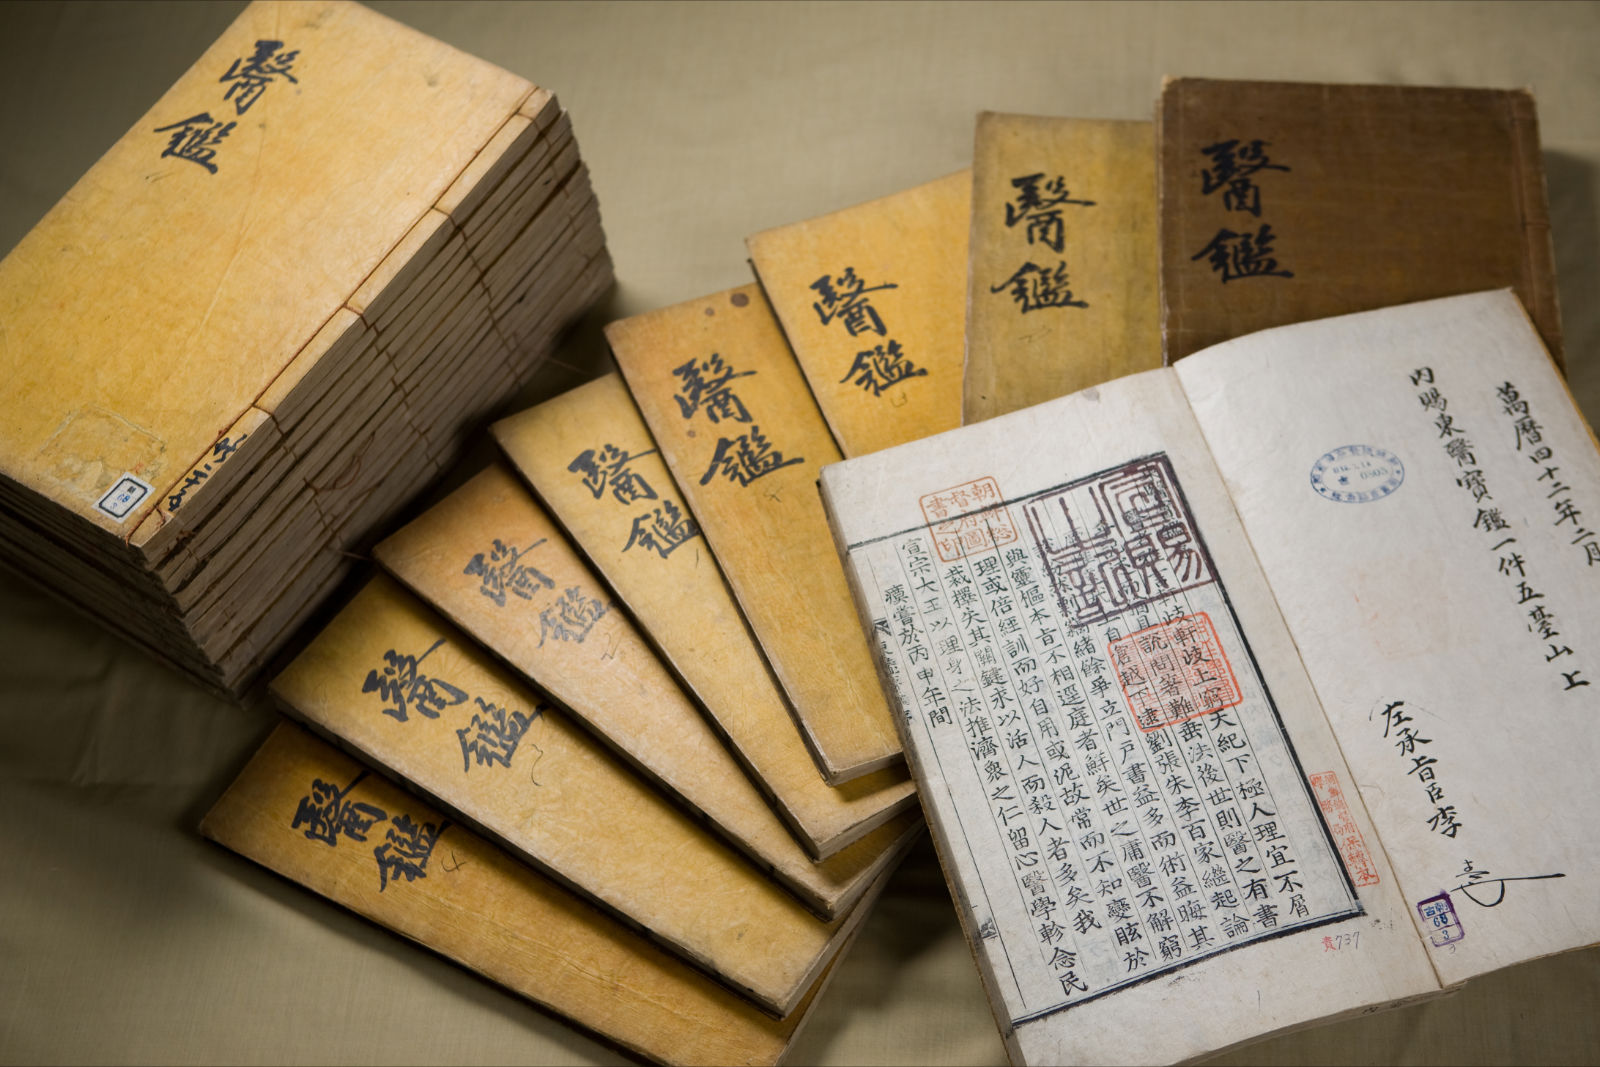 醫鑑
醫鑑
醫鑑
醫鑑
醫鑑
醫鑑
醫鑑
醫鑑
醫鑑
萬曆四十二年二月
內賜東醫寶鑑一件五臺山上
左承旨臣李
宣賜之記
朝鮮總督府圖書之印
岐軒岐上窮天紀下極人理宜不屑
說問著難垂法後世則醫之有書
自倉越下逮劉張朱李百家繼起論
緖餘爭立門戶書益多而術益晦其
與靈樞本旨不相逕庭者鮮矣世之庸醫不解窮
理或倍經訓而好自用或泥故常而不知變眩於
裁擇失其關鍵求以活人而殺人者多矣我
宣宗大王以理身之法推濟衆之仁留心醫學軫念民
瘼嘗於丙申年間
貴737